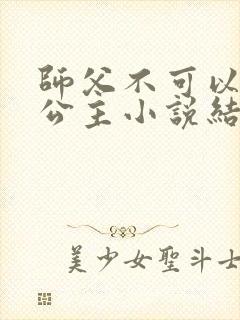 師父不可以
公主小說結
美少女聖斗士